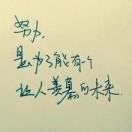 努力，
是为了能有个
让人羡慕的未来.